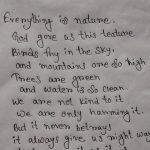 Everything is nature,
God gave us this feature
Birds fly in the sky,
and mountains are so high
Trees are green
and water is so clean.
We are not kind to it
we are only harming it.
But it never betrays
it always give us might